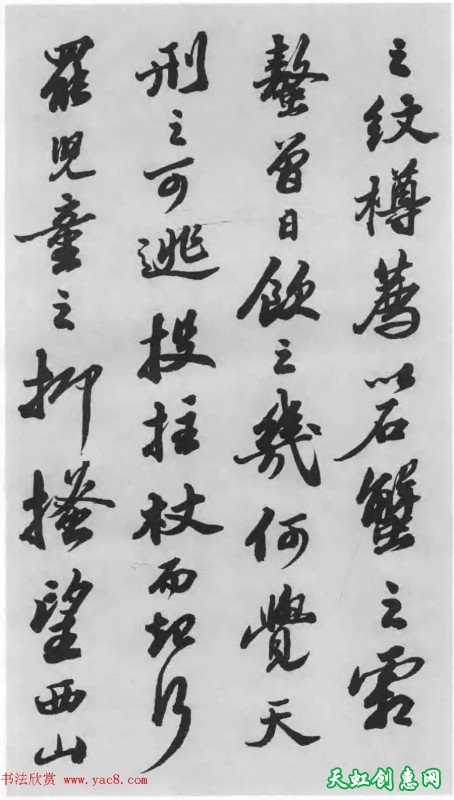 之紋樽薦以石蟹之霜
螯曾日飲之幾何覺天
刑之可逃投拄杖而起行
罷兒童之抑搔望西山
书法欣赏 www.yac8.com
天虹创惠网